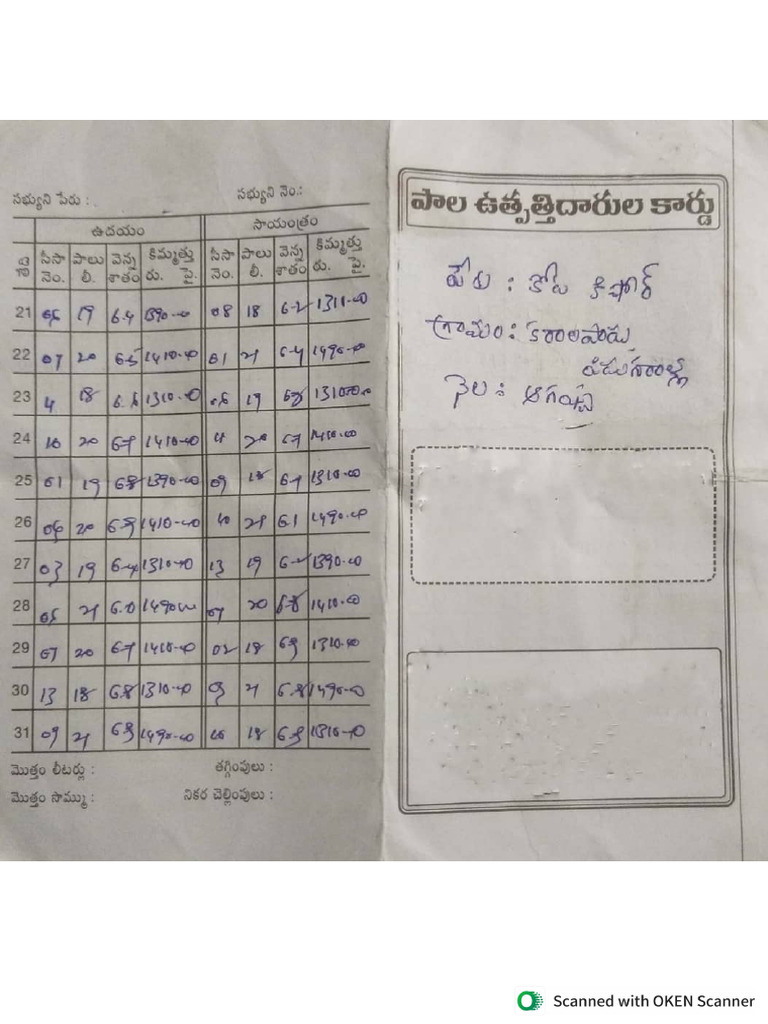 సభ్యుని పేరు : సభ్యుని నెం.:
ఉదయం సాయంత్రం
తేది సీసా నెం. పాలు లీ. వెన్న శాతం కిమ్మత్తు రు. పై. సీసా నెం. పాలు లీ. వెన్న శాతం కిమ్మత్తు రు. పై.
21 06 19 6.4 1390-00 08 18 6-2 1311-00
22 07 20 6-5 1410-40 01 21 6-4 1490-40
23 4 18 6.6 1310-40 06 19 1310-00
24 10 20 6-7 1410-40 4 20 6-7 1410-00
25 01 19 6-8 1390-00 09 18 6-7 1310-00
26 06 20 6-9 1410-40 10 21 6.1 1490-40
27 03 19 6-4 1310-40 13 19 1390-00
28 05 21 6.0 1490 07 20 6-8 1410-00
29 07 20 6-7 1410-40 02 18 6-9 1310-40
30 13 18 6.8 1310-40 09 21 6.8 1490-00
31 09 21 6-9 1490-00 18 6-9 1310-40
మొత్తం లీటర్లు : తగ్గింపులు :
మొత్తం సొమ్ము : నికర చెల్లింపులు :
పాల ఉత్పత్తిదారుల కార్డు
పేరు : కోట కిషోర్
గ్రామం : కరాలపాడు
పిడుగురాళ్ల
నెల : ఆగష్టు
Scanned with OKEN Scanner